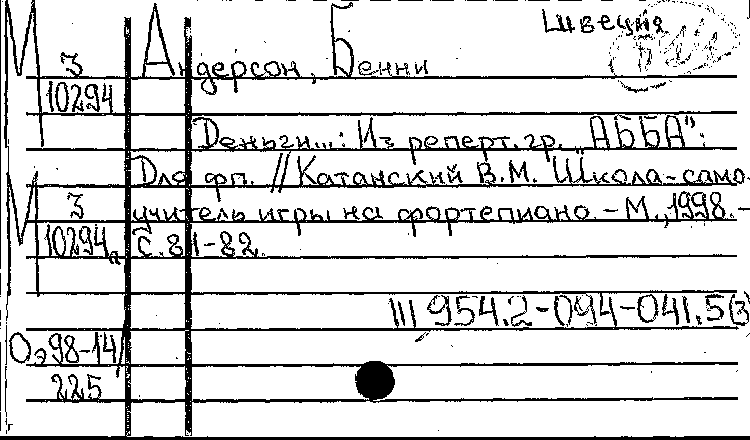 Швеция
М З Андерсон, Бенни
10294
Деньги...: Из реперт. гр. "АББА":
Для фп. // Катанский В.М. Школа-само-
М З учитель игры на фортепиано. - М., 1998. -
10294а С. 81-82.
Ш 954.2-094-041.5(3)
Оэ98-14/
225